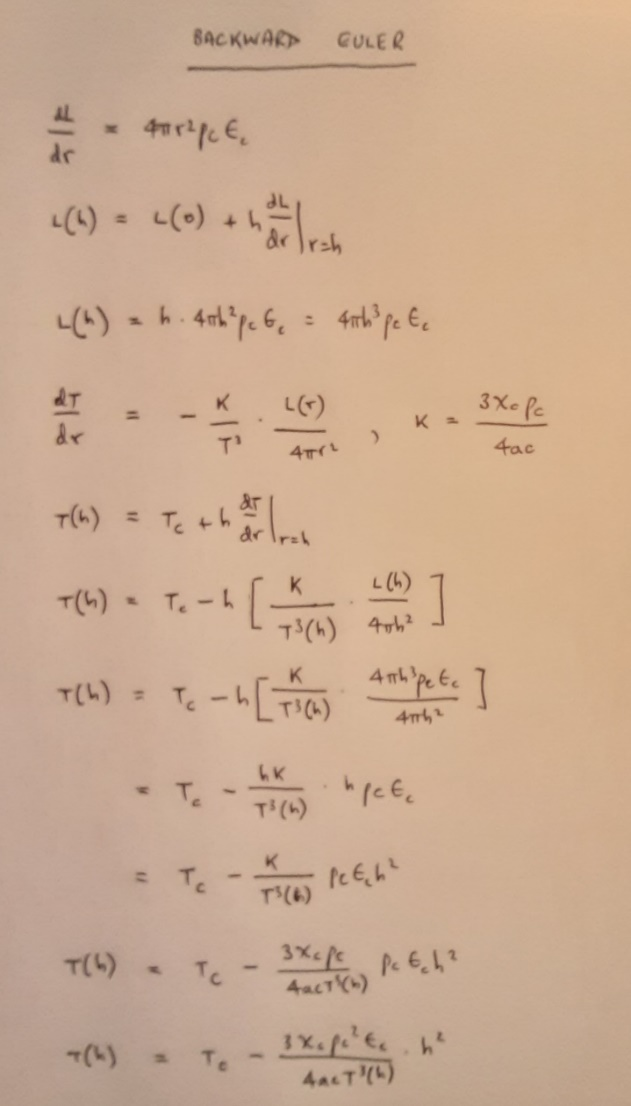 BACKWARD EULER
dL/dr = 4πr²ρc ϵc
L(h) = L(0) + h dL/dr |r=h
L(h) = h · 4πh²ρc ϵc = 4πh³ρc ϵc
dT/dr = - K/T³ · L(r)/4πr² , K = 3χcρc/4ac
T(h) = Tc + h dT/dr |r=h
T(h) = Tc - h [ K/T³(h) · L(h)/4πh² ]
T(h) = Tc - h [ K/T³(h) · 4πh³ρcϵc/4πh² ]
= Tc - hK/T³(h) · h ρc ϵc
= Tc - K/T³(h) ρc ϵc h²
T(h) = Tc - 3χcρc/4acT³(h) ρc ϵc h²
T(h) = Tc - 3χcρc²ϵc/4acT³(h) · h²